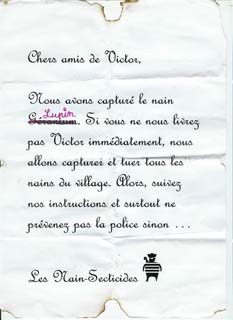 Chers amis de Victor,
Nous avons capturé le nain
Lupin
Géranium. Si vous ne nous livrez
pas Victor immédiatement, nous
allons capturer et tuer tous les
nains du village. Alors, suivez
nos instructions et surtout ne
prévenez pas la police sinon ...
Les Nain-Secticides